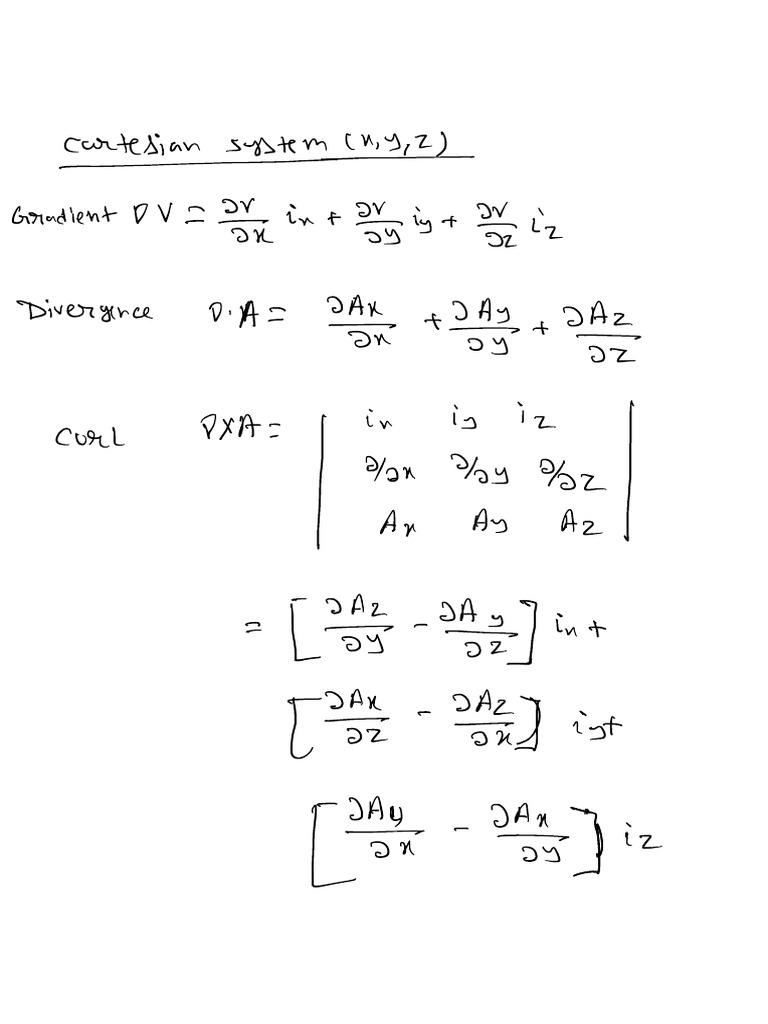 Cartesian system (x, y, z)
Gradient ∇V = ∂V/∂x ix + ∂V/∂y iy + ∂V/∂z iz
Divergence ∇·A = ∂Ax/∂x + ∂Ay/∂y + ∂Az/∂z
Curl ∇×A = | ix iy iz |
| ∂/∂x ∂/∂y ∂/∂z |
| Ax Ay Az |
= [∂Az/∂y - ∂Ay/∂z] ix +
[∂Ax/∂z - ∂Az/∂x] iy +
[∂Ay/∂x - ∂Ax/∂y] iz